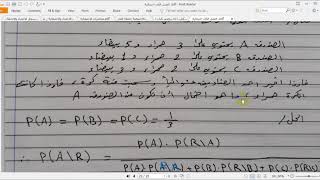 الصندوق A يحتوي على 3 حمراء و 5 بيضاء
الصندوق B يحتوي على 2 حمراء و 1 بيضاء
الصندوق C يحتوي على 2 حمراء و 3 بيضاء
فاذا اختير احد الصناديق عشوائياً سحبت منه كرة، فاذا كانت
الكرة حمراء، ما هو احتمال ان تكون من الصندوق A
الحل/
P(A) = P(B) = P(C) = 1/3
∴ P(A\R) = P(A) . P(R\A)
P(A) . P(A\R) + P(B) . P(R\B) + P(C) . P(R